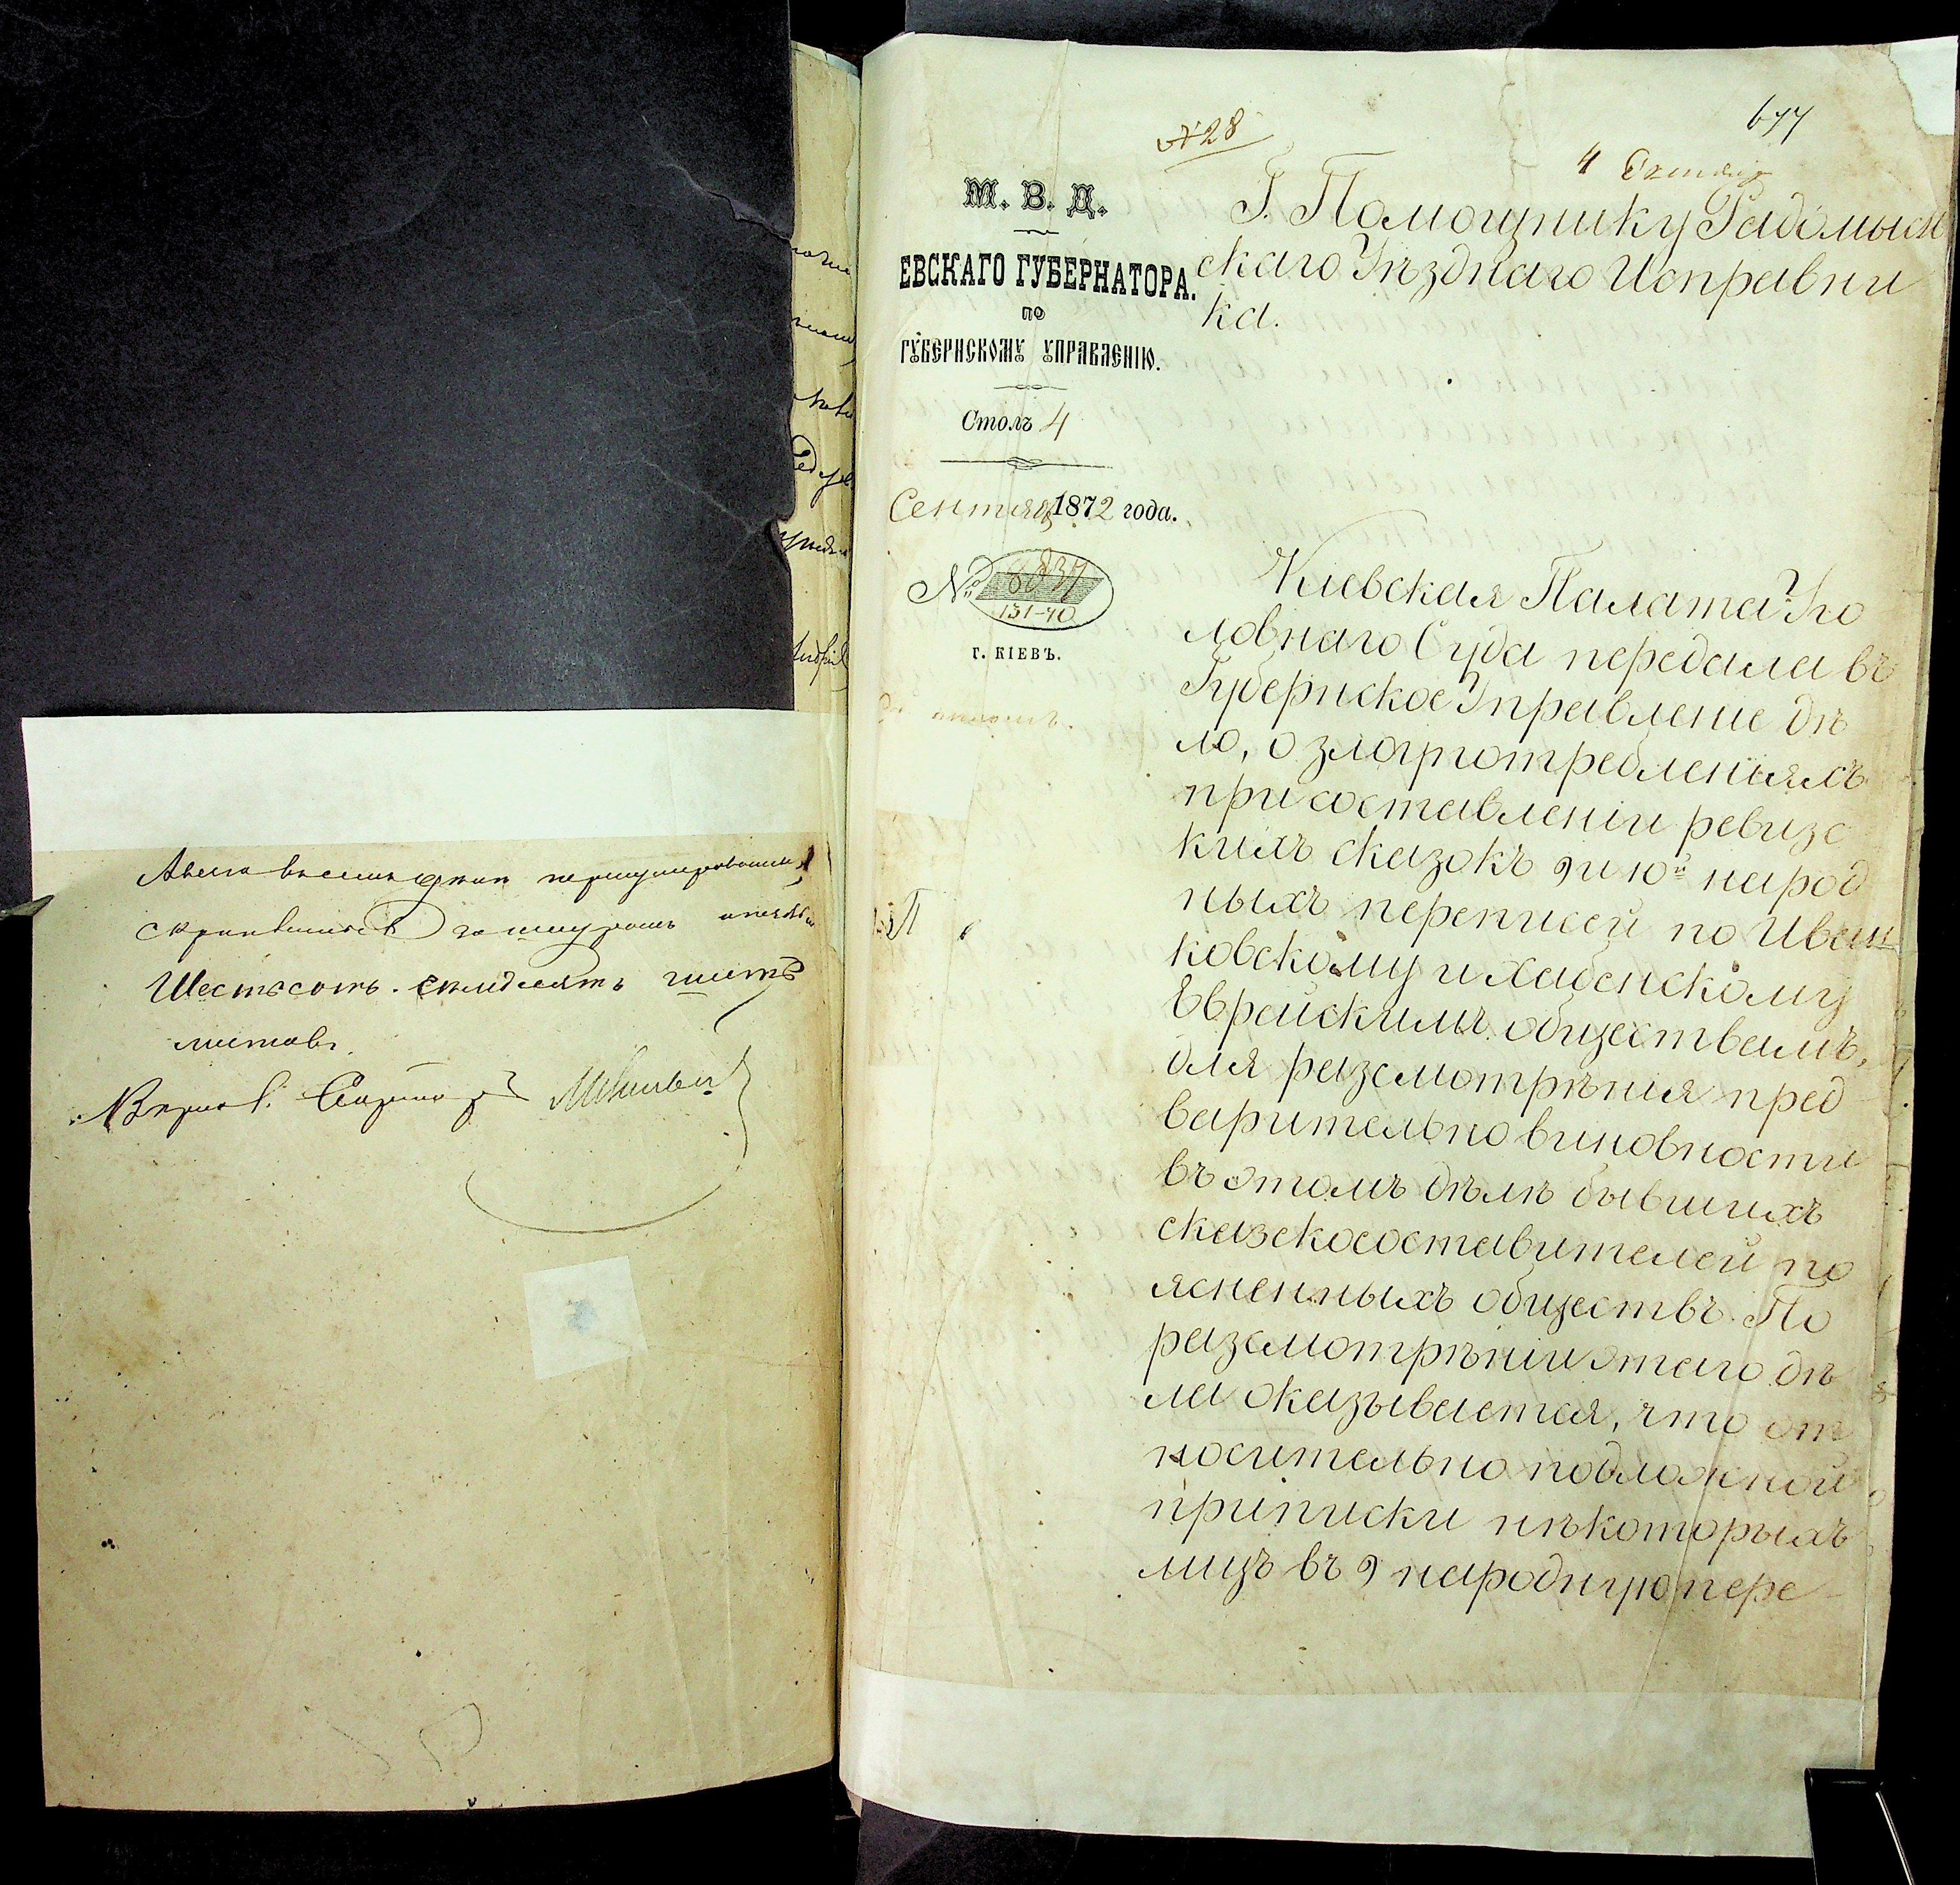 Шестьсотъ семдесятъ шесть
листовъ.
№ 28
677
4 Октября
М. В. Д.
ЕВСКАГО ГУБЕРНАТОРА.
по
ГУБЕРНСКОМУ УПРАВЛЕНІЮ.
Столъ 4
Сентября 1872 года.
№ 8837
131-70
г. КІЕВЪ.
Г. Помощнику Радомысль
скаго Уѣзднаго Исправни
ка.
Кіевская Палата Уго
ловнаго Суда передала въ
Губернское Управленіе дѣ
ло, о злоупотребленіяхъ
при составленіи ревизс
кихъ сказокъ 9 и 10й народ
ныхъ переписей по Иван
ковскому и Хабенскому
Еврейскимъ обществамъ,
для разсмотрѣнія пред
варительно виновности
въ этомъ дѣлѣ бывшихъ
сказкосоставителей по
ясненныхъ обществъ. По
разсмотрѣніи этаго дѣ
ла оказывается, что от
носительно подложной
приписки нѣкоторыхъ
лицъ въ 9 народную пере-